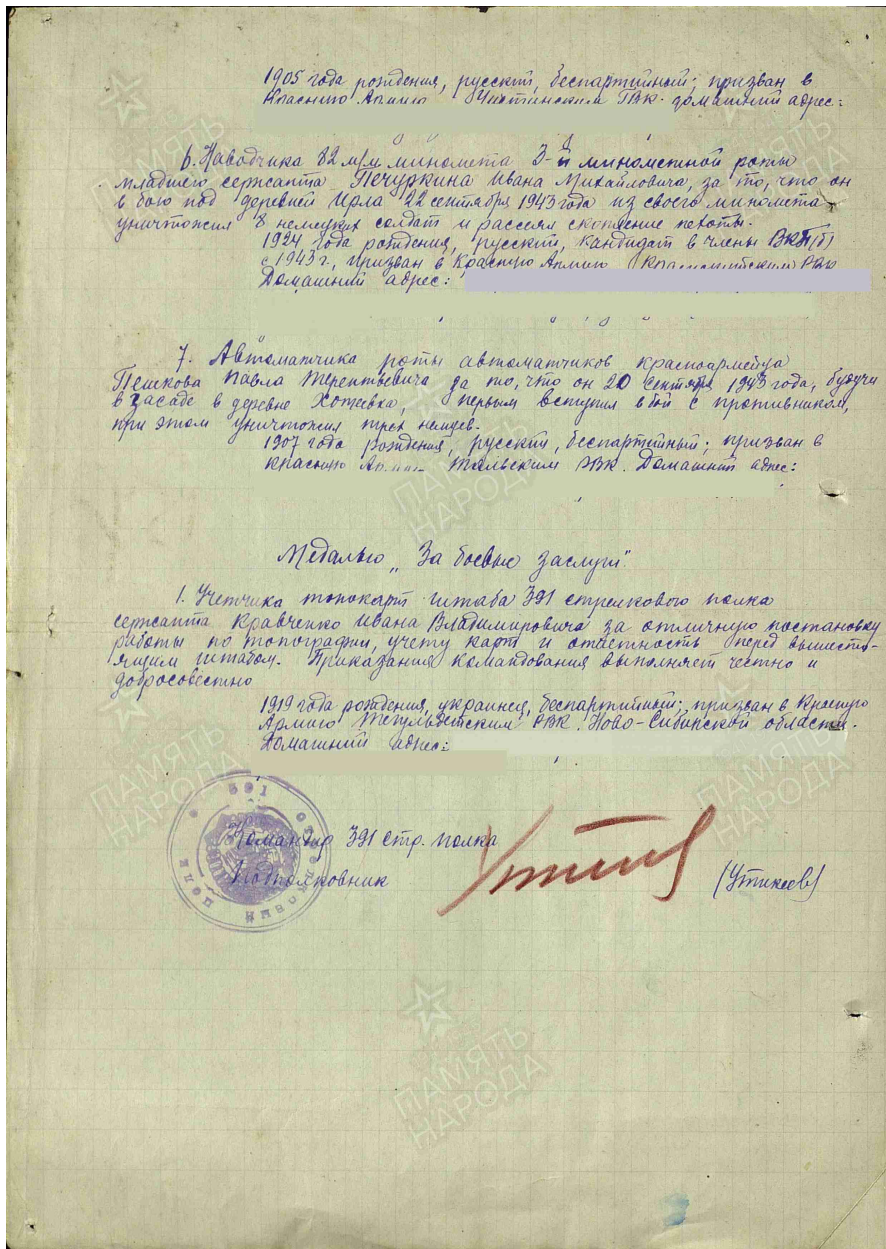 1905 года рождения, русский, беспартийный; призван в
Красную Армию РВК. домашний адрес:
6. Наводчика 82 м/м миномета 3-й минометной роты
младшего сержанта Печуркина Ивана Михайловича, за то, что он
в бою под деревней Ирла 22 сентября 1943 года из своего миномета
уничтожил 8 немецких солдат и рассеял скопление пехоты.
1924 года рождения, русский, кандидат в члены ВКП(б)
с 1943 г., призван в Красную Армию РВК
Домашний адрес:
7. Автоматчика роты автоматчиков красноармейца
Пешкова Павла Терентьевича за то, что он 20 сентября 1943 года, будучи
в засаде в деревне Хотеевка, первым вступил в бой с противником,
при этом уничтожил трех немцев.
1907 года рождения, русский, беспартийный; призван в
Красную Армию РВК. Домашний адрес:
Медалью „За боевые заслуги"
1. Учетчика топокарт штаба 391 стрелкового полка
сержанта Кравченко Ивана Владимировича за отличную постановку
работы по топографии, учету карт и отчетность перед вышесто-
ящим штабом. Приказания командования выполняет честно и
добросовестно
1919 года рождения, украинец, беспартийный; призван в Красную
Армию РВК. Ново-Сибирской области.
Домашний адрес:
391
Командир 391 стр. полка
Подполковник (Утикеев)
ПАМЯТЬ
НАРОДА